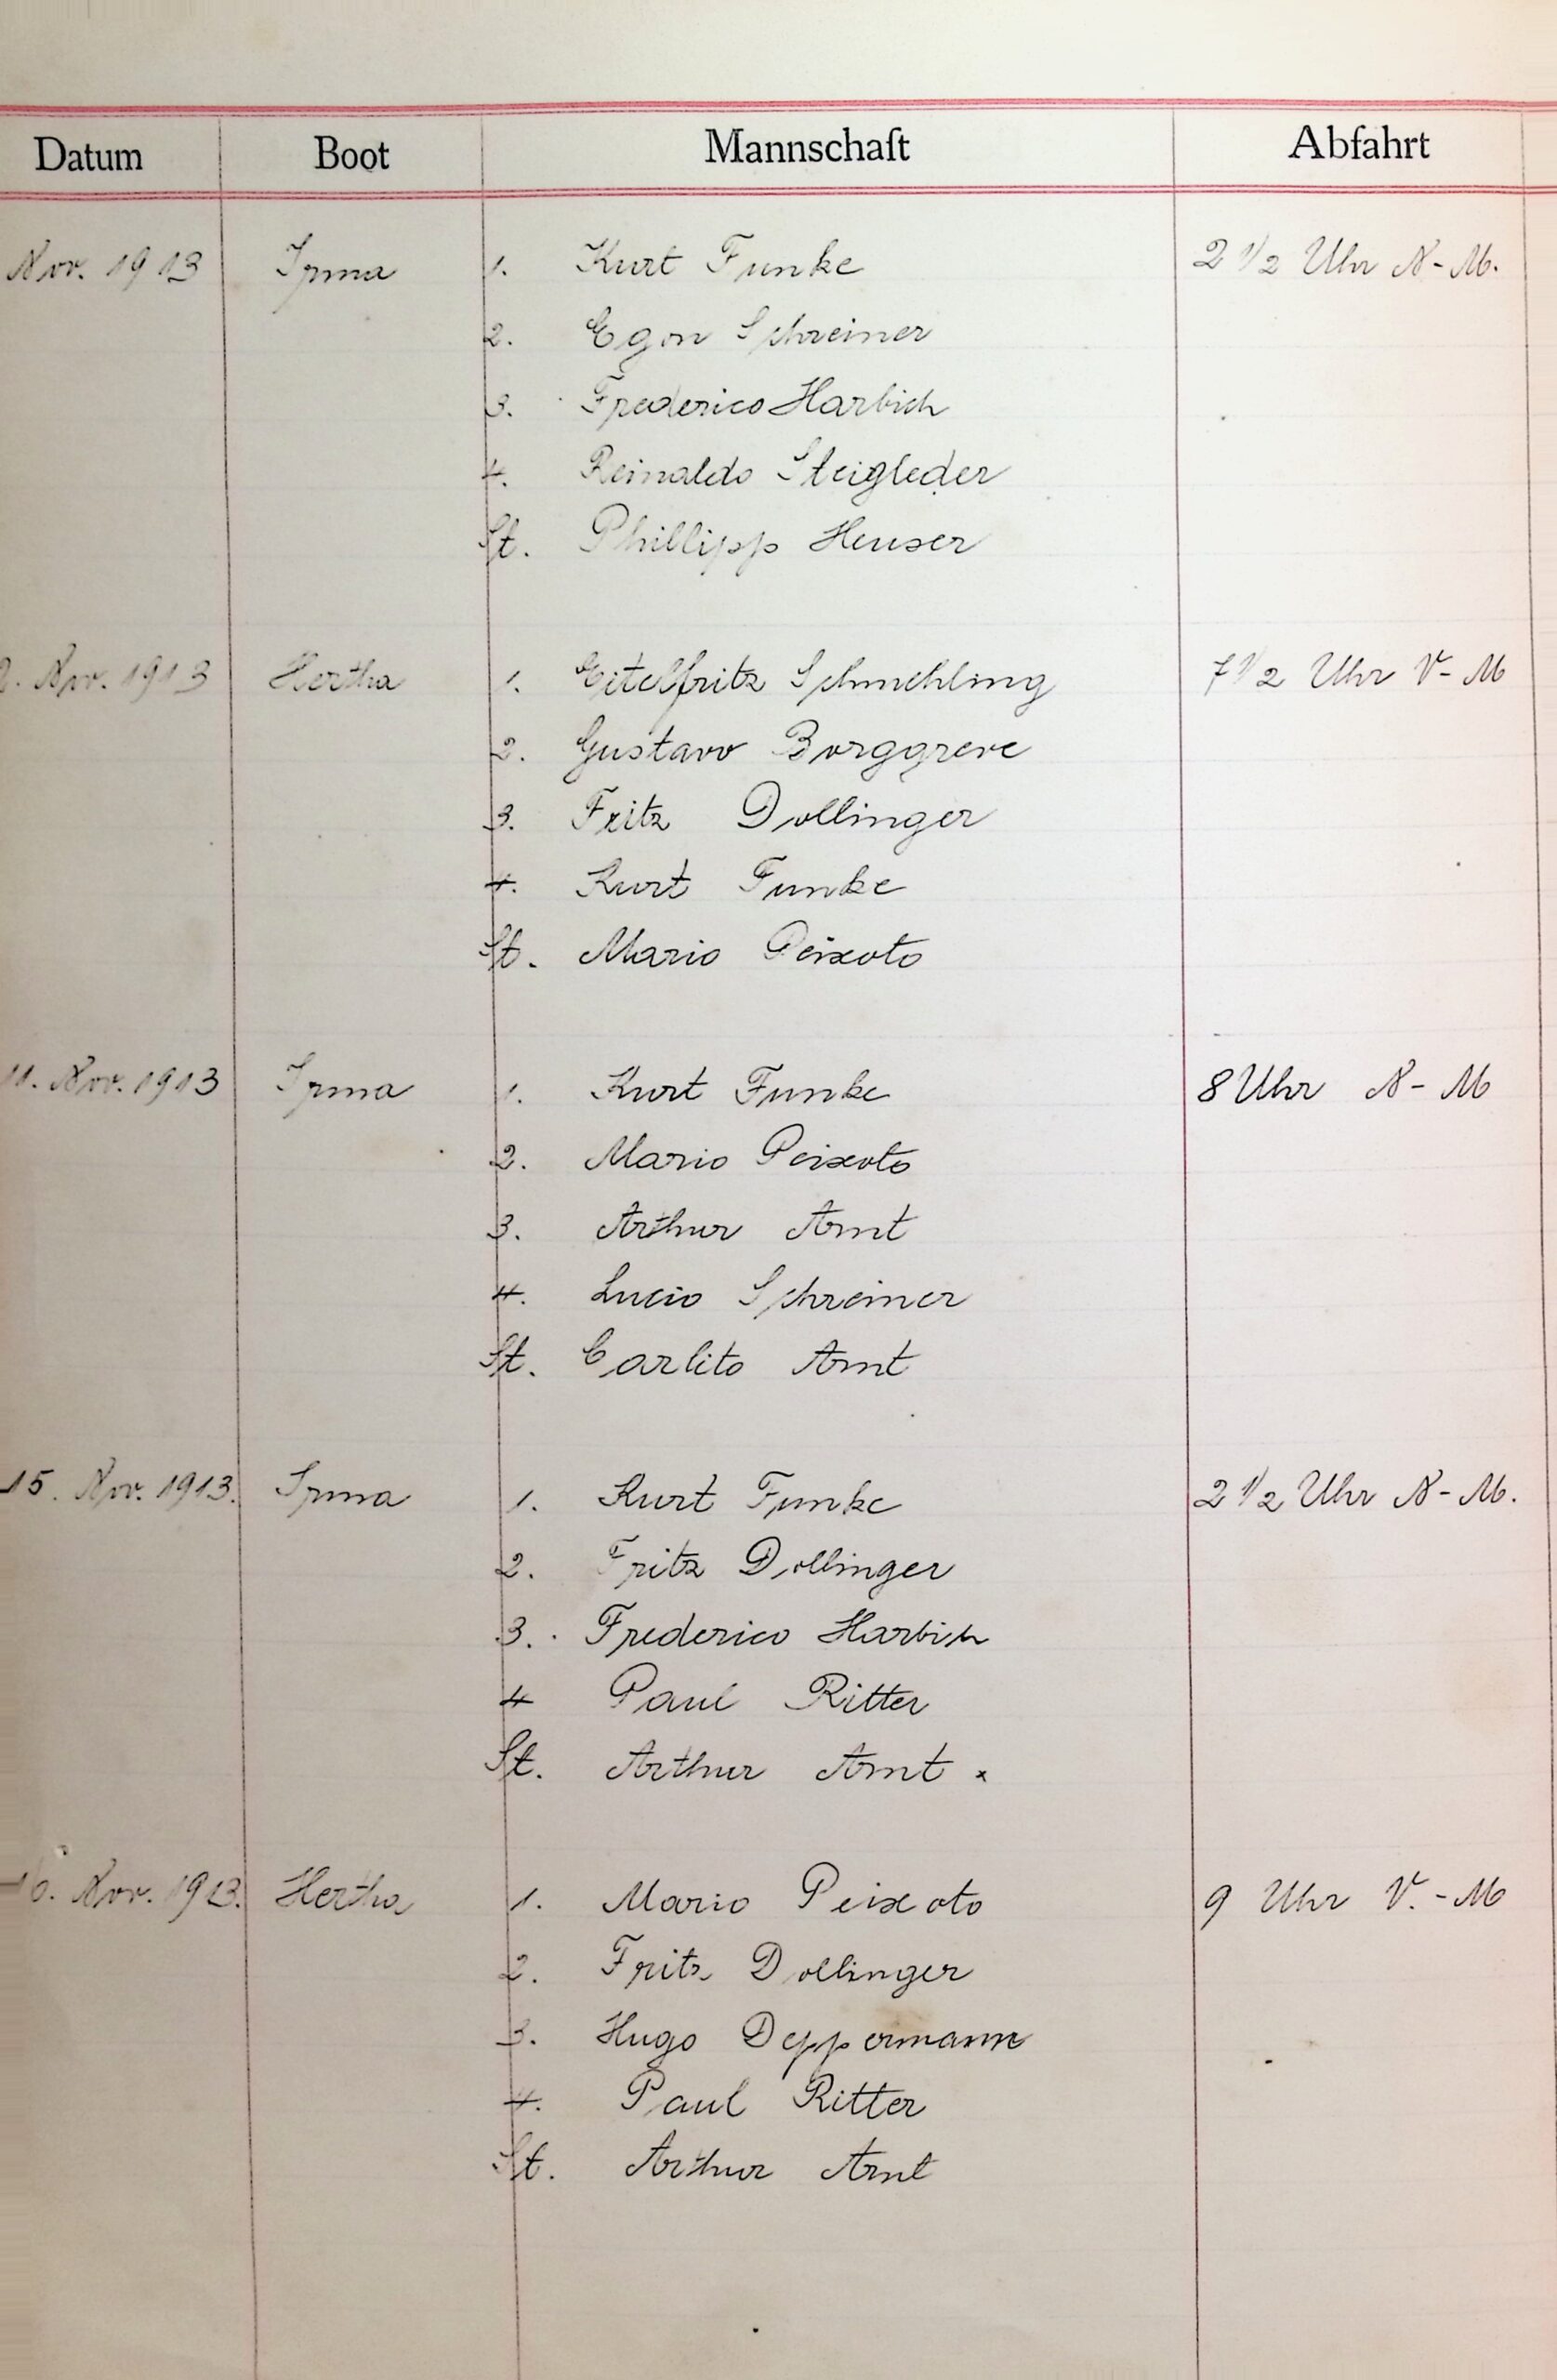 Datum Boot Mannschaft Abfahrt
Nov. 1913 Irma 1. Kurt Funke 2 1/2 Uhr N-M.
2. Egon Schreiner
3. Frederico Harbich
4. Reinaldo Steigleder
St. Phillipp Heuser
Nov. 1913 Hertha 1. Eitelfritz Schmehling 7 1/2 Uhr V-M
2. Gustavo Borggreve
3. Fritz Dollinger
4. Kurt Funke
St. Mario Peixoto
11. Nov. 1913 Irma 1. Kurt Funke 8 Uhr N-M
2. Mario Peixoto
3. Arthur Arnt
4. Lucio Schreiner
St. Carlito Arnt
15. Nov. 1913. Irma 1. Kurt Funke 2 1/2 Uhr N-M.
2. Fritz Dollinger
3. Frederico Harbich
4 Paul Ritter
St. Arthur Arnt x
16. Nov. 1913. Hertha 1. Mario Peixoto 9 Uhr V.-M
2. Fritz Dollinger
3. Hugo Deppermann
4. Paul Ritter
St. Arthur Arnt